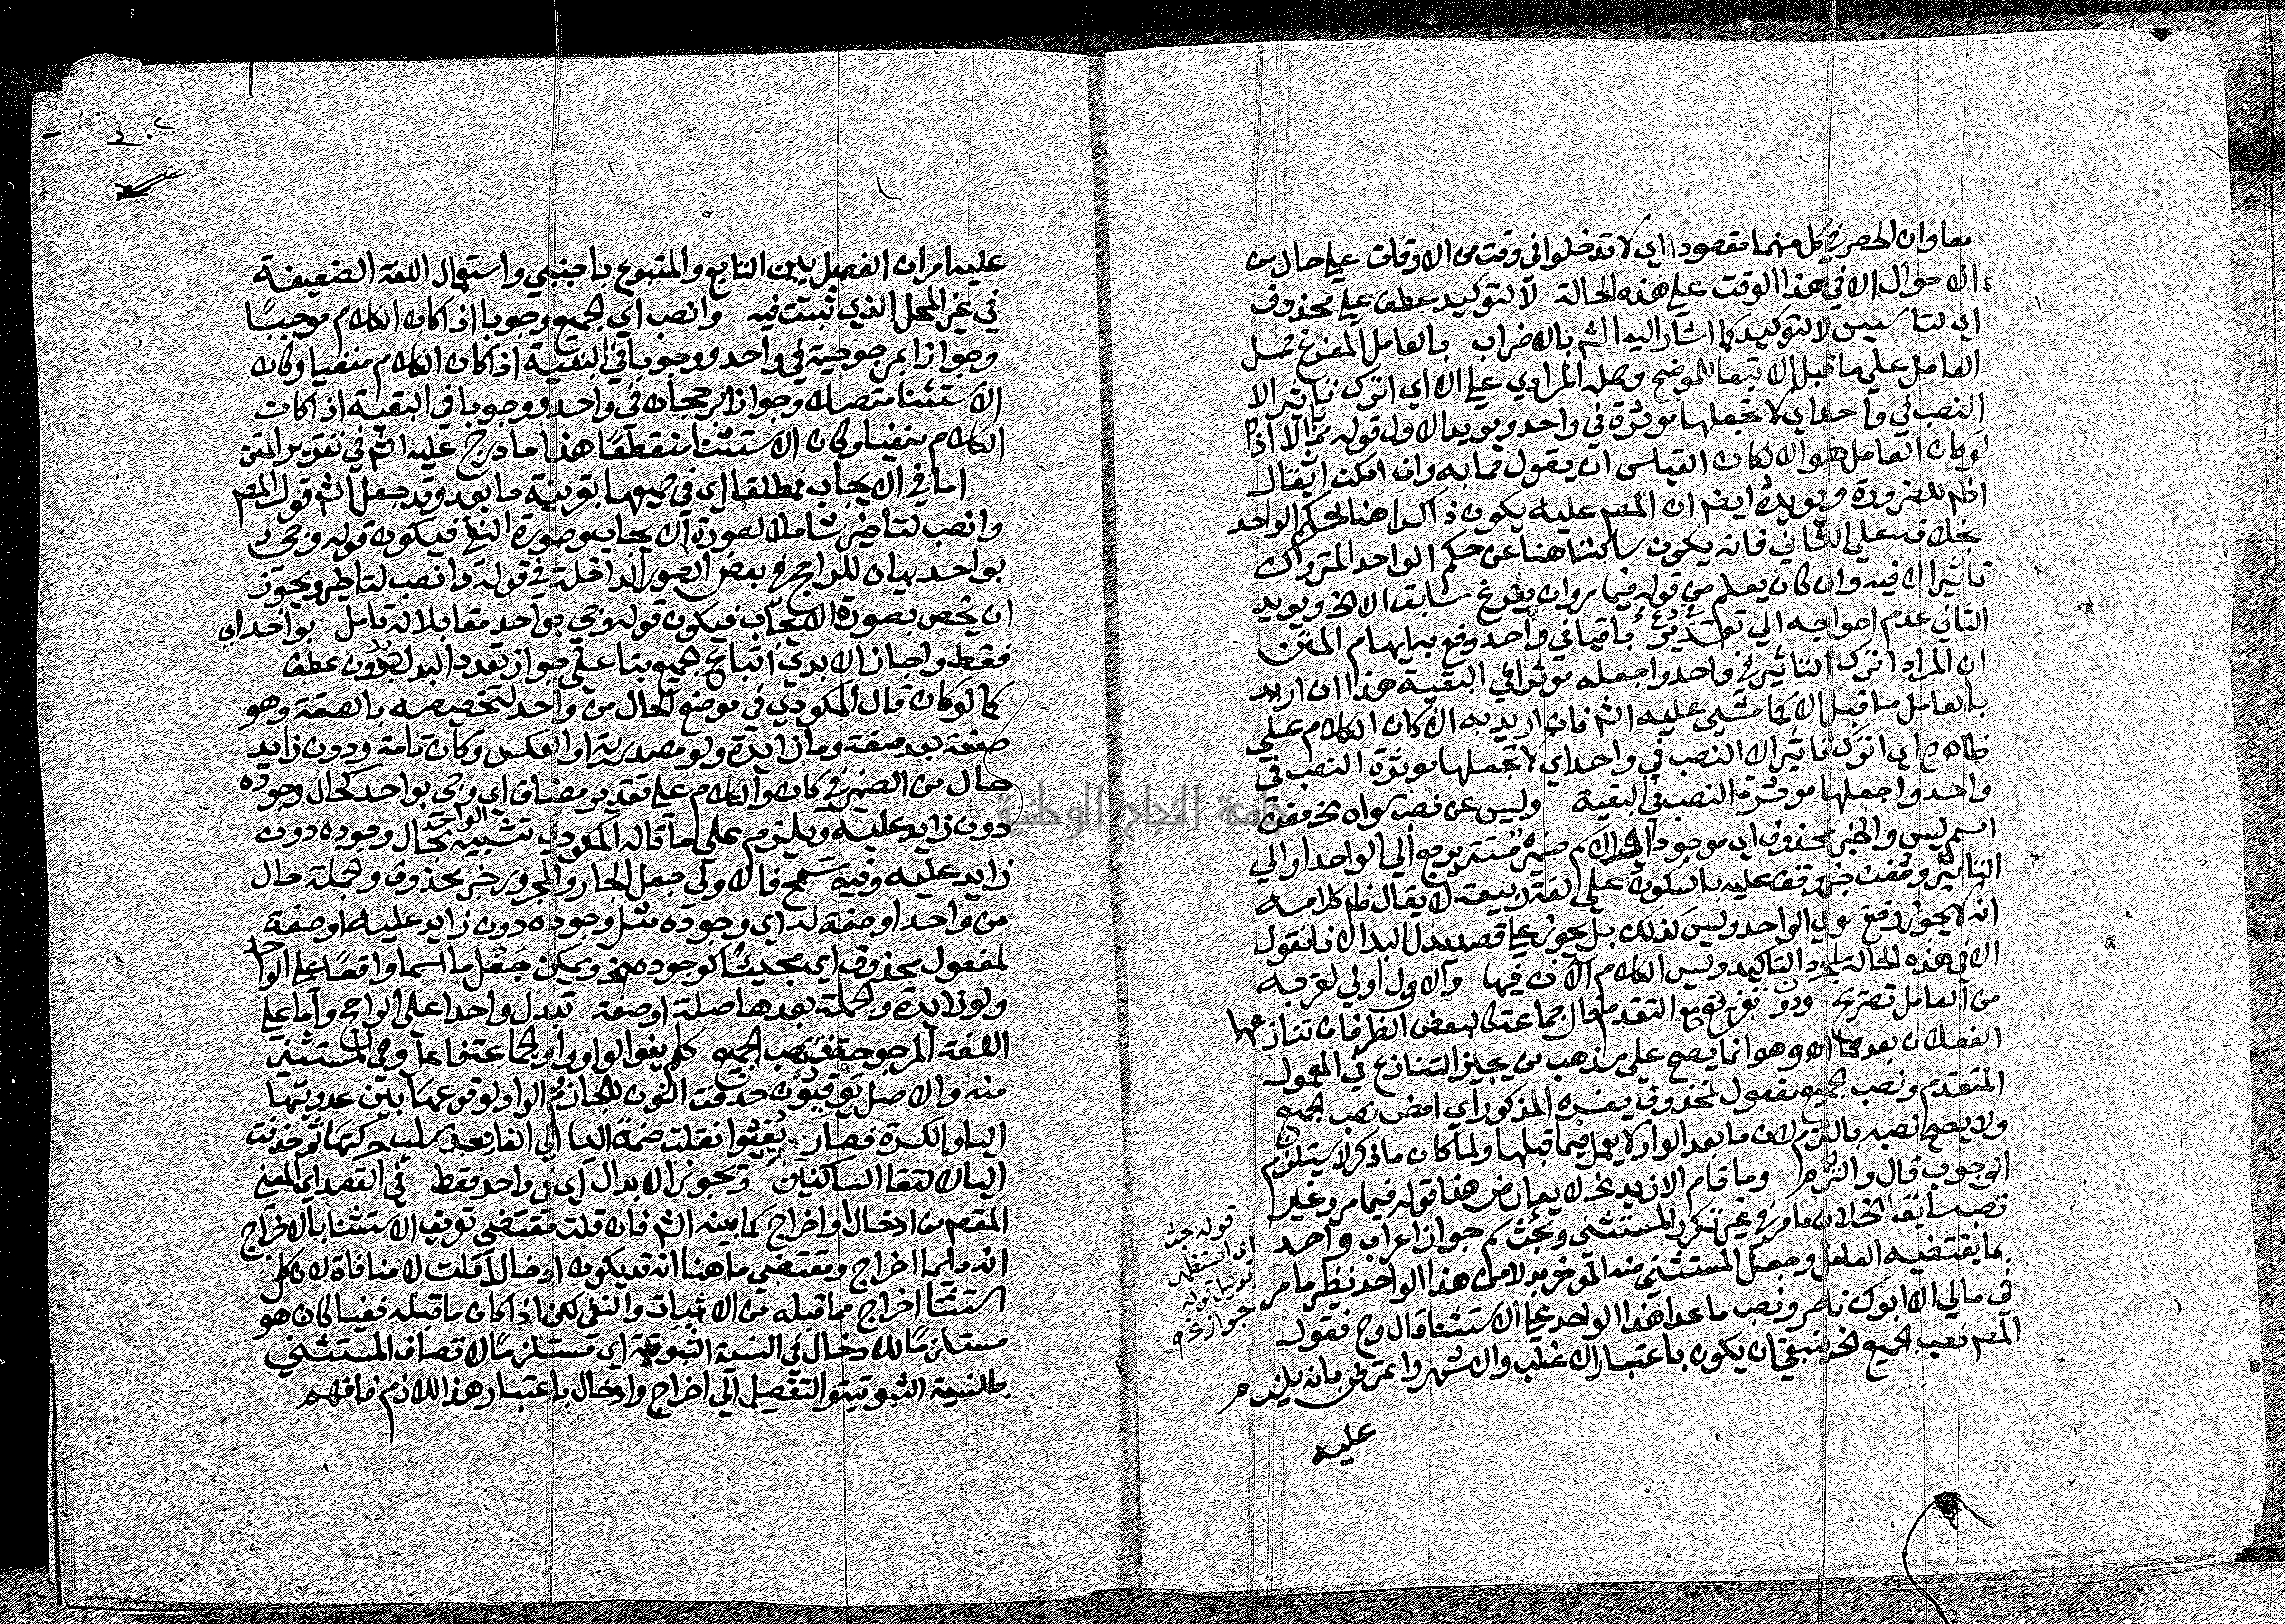 معا وان الحصر في كل منهما مقصود اي لا تدخلوا في وقت من الاوقات علي حال من
الاحوال الا في هذا الوقت علي هذه الحالة لا لتوكيد عطف علي محذوف
اي لتاسيس لا لتوكيد كما اشار اليه الشم بالاضراب بالعامل المفرغ حمل
العامل علي ما قبل الا تبعا للموضح وحمله المرادي علي الا اي اترك تاثير الا
النصب في واحد اي لا تجعلها موثرة في واحد ويويد الاول قوله مما بالا اذ
لو كان العامل هو الا لكان القياس ان يقول مما به وان امكن ان يقال
اظهر للضرورة ويويده ايضا ان المصم عليه يكون ذاكرا هنا لحكم الواحد
بخلافه علي الثاني فانه يكون ساكتا هنا عن حكم الواحد المتروك
تاثير الا فيه وان كان يعلم من قوله فيما مر وان يفرغ سابق الا الخ ويويد
الثاني عدم احواجه الي تقدير باقيا في واحد وفع به ايهام المتن
ان المراد اترك التاثير في واحد واجعله موثرا في البقية هذا ان اريد
بالعامل ما قبل الا كما مشي عليه الشم فان اريد به الا كان الكلام علي
ظاهره اي اترك تاثير الا النصب في واحد اي لا تجعلها موثرة النصب في
واحد واجعلها موثرة النصب في البقية وليس عن نصب سواه مغني
اسم ليس والخبر محذوف اي موجودا وفي الاسم ضمير مستتر يرجع الي الواحد او الي
التاثير وقفت خبر وقف عليه بالسكون علي لغة ربيعة لا يقال ظاهر كلامه
انه لا يجوز رفع سوي الواحد وليس كذلك بل يجوز علي قصد بدل البدل لانا نقول
الا في هذه الحالة لمجرد التاكيد وليس الكلام الان فيها والاول اولي لقربه
من العامل تصريح ودون تفريغ مع التقدم قال جماعة كل بعض الظرفان تنازعهما
الفعلان بعدهما اه وهو انما يصح علي مذهب من يجيز التنازع في المعمول
المتقدم ونصب الجميع مفعول لمحذوف يفسره المذكور اي امض نصب الجميع
ولا يصح نصبه بالتزم لان ما بعد الواو لا يعمل فيما قبلها ولما كان ما ذكر لا يستلزم
الوجوب قال والتزم وما قام الا زيد الخ لا يعارض هذا قوله فيما مر وغير
نصب سابق الخ لان ما مر في غير تكرر المستثني وبحث سم جواز اعراب واحد
بما يقتضيه العامل وجعل المستثني منه المؤخر بدلا من هذا الواحد نظير ما مر
في مالي الا ابوك ناصر ونصب ما عدا هذا الواحد علي الاستثنا قال وح فقول
المصم نصب الجميع الخ ينبغي ان يكون باعتبار الاغلب والاشهر واعترض بانه يلزم
عليه
قوله بحث
اي استظهر
قوله
جواز الخ
عليه امران الفصل بين التابع والمتبوع باجنبي واستعمال اللغة الضعيفة
في غير المحل الذي ثبتت فيه وانصب اي الجميع وجوبا اذا كان الكلام موجبا
وجوازا بمرجوحية في واحد ووجوبا في البقية اذا كان الكلام منفيا وكان
الاستثنا متصلا وجوازا برجحان في واحد ووجوبا في البقية اذا كان
الكلام منفيا وكان الاستثنا منقطعا هذا ما درج عليه الشم في تقرير المتن
اما في الايجاب فمطلقا اي في جميعها بقرينة ما بعد وقد جعل الشم قول المصم
وانصب لتاخير شاملا لصورة الايجاب وصورة النفي فيكون قوله وجي
بواحد بيان للراجح في بعض الصور الداخلة في قوله وانصب لتاخير ويجوز
ان يخص بصورة الايجاب فيكون قوله وجي بواحد مقابلا له تامل بواحد اي
فقط واجاز الابدي اتباع الجميع بنا علي جواز تعدد البدل بدون عطف
كما لو كان قال المكودي في موضع الحال من واحد لتخصيصه بالصفة وهو
صفة بعد صفة وما زايدة ولو مصدرية او العكس وكان تامة ودون زايد
حال من الضمير في كان والكلام علي تقدير مضاف اي وجي بواحد كحال وجوده
دون زايد عليه ويلزم علي ما قاله المكودي تشبيه الواحد بحال وجوده دون
زايد عليه وفيه تسمح فالاولي جعل الجار والمجرور خبر محذوف والجملة حال
من واحد او صفة له اي وجوده مثل وجوده دون زايد عليه او صفة
لمفعول محذوف اي مجيئا كوجوده الخ ويمكن جعل ما اسما واقعا علي الواحد
ولو زايدة والجملة بعدها صلة او صفة تبدل واحدا علي الراجح واما علي
اللغة المرجوحة فتنصب الجميع كلم يفوا الواو واو الجماعة فاعل وهي المستثني
منه والاصل توفيون حذفت النون للجازم والواو لوقوعها بين عدوتيها
اليا والكسرة فصار يفيوا نقلت ضمة اليا الي الفا بعد سلب حركتها ثم حذفت
اليا لالتقا الساكنين ويجوز الابدال اي في واحد فقط في القصد اي المعني
المقصود من ادخال او اخراج كما بينه الشم فان قلت مقتضي تعريف الاستثنا بالاخراج
انه دايما اخراج ومقتضي ما هنا انه قد يكون ادخالا قلت لا منافاة لان كل
استثنا اخراج مما قبله من الاثبات والنفي لكن اذا كان ما قبله نفيا كان هو
مستلزما للادخال في النسبة الثبوتية اي مستلزما لاتصاف المستثني
بالنسبة الثبوتية والتفصيل الي اخراج وادخال باعتبار هذا اللازم فافهم
جامعة النجاح الوطنية